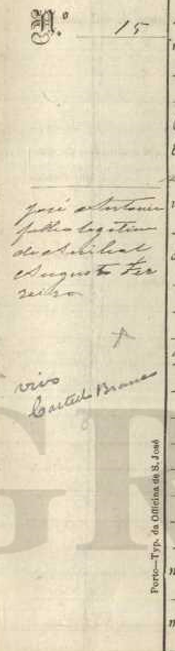 N.º 15
José Antonio
filho legitimo
de Annibal
Augusto Fer
reira
vivo
Castello Branco
Porto—Typ. da Officina de S. José
GR